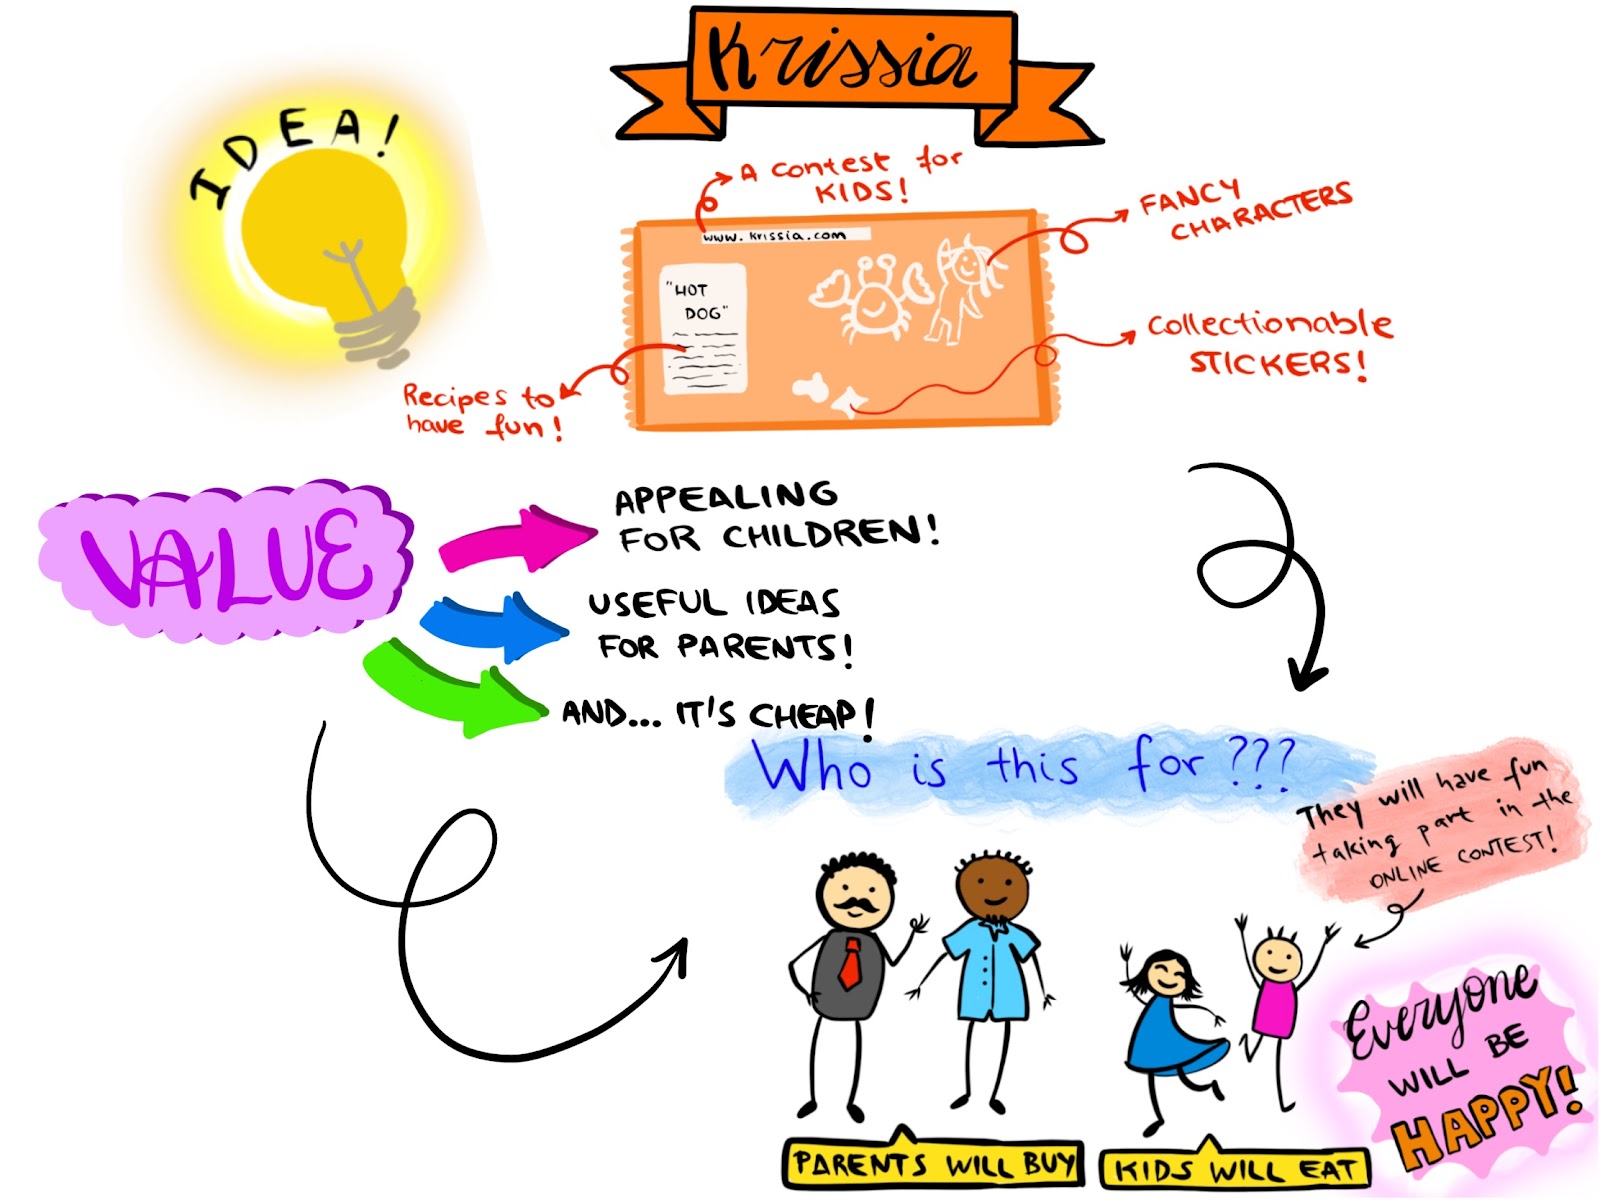 Krissia
IDEA!
A contest for
KIDS!
FANCY
CHARACTERS
www.krissia.com
"HOT
DOG"
collectionable
STICKERS!
Recipes to
have fun!
VALUE
APPEALING
FOR CHILDREN!
USEFUL IDEAS
FOR PARENTS!
AND... IT'S CHEAP!
Who is this for???
They will have fun
taking part in the
ONLINE CONTEST!
Everyone
WILL BE
HAPPY!
PARENTS WILL BUY
KIDS WILL EAT